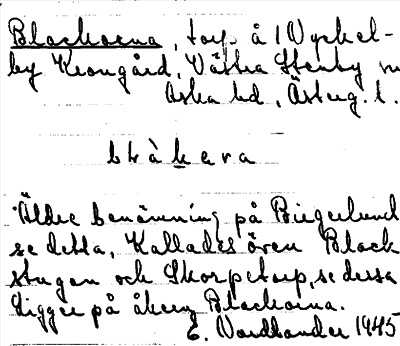 Blackorna, torp å 1 Nyckel-
by Krongård, Västra Stenby sn
Aska hd, Österg. l.
blàkera
Äldre benämning på Birgerlund
se detta, Kallades även Black
stugan och Skorpetorp, se dessa
Ligger på åkern Blackorna.
E. Nordlander 1945